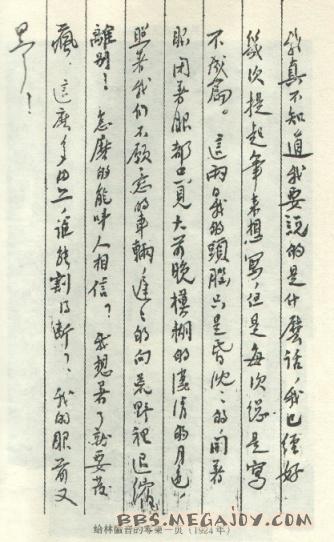 我真不知道我要說的是什麼話，我已經好
幾次提起筆來想寫，但是每次總是寫
不成篇。這兩日我的頭腦只是昏沈沈的，開着
眼閉着眼都只見大前晚模糊的凄清的月色，
照着我們不願意的車輛，遲遲的向荒野裡退縮。
離別！怎麼的能叫人相信？我想着了就要發
瘋，這麼多的絲，誰能割得斷？我的眼前又
黑了！
給林徽音的零柬一頁（1924年）
BBS.MEGAJOY.COM